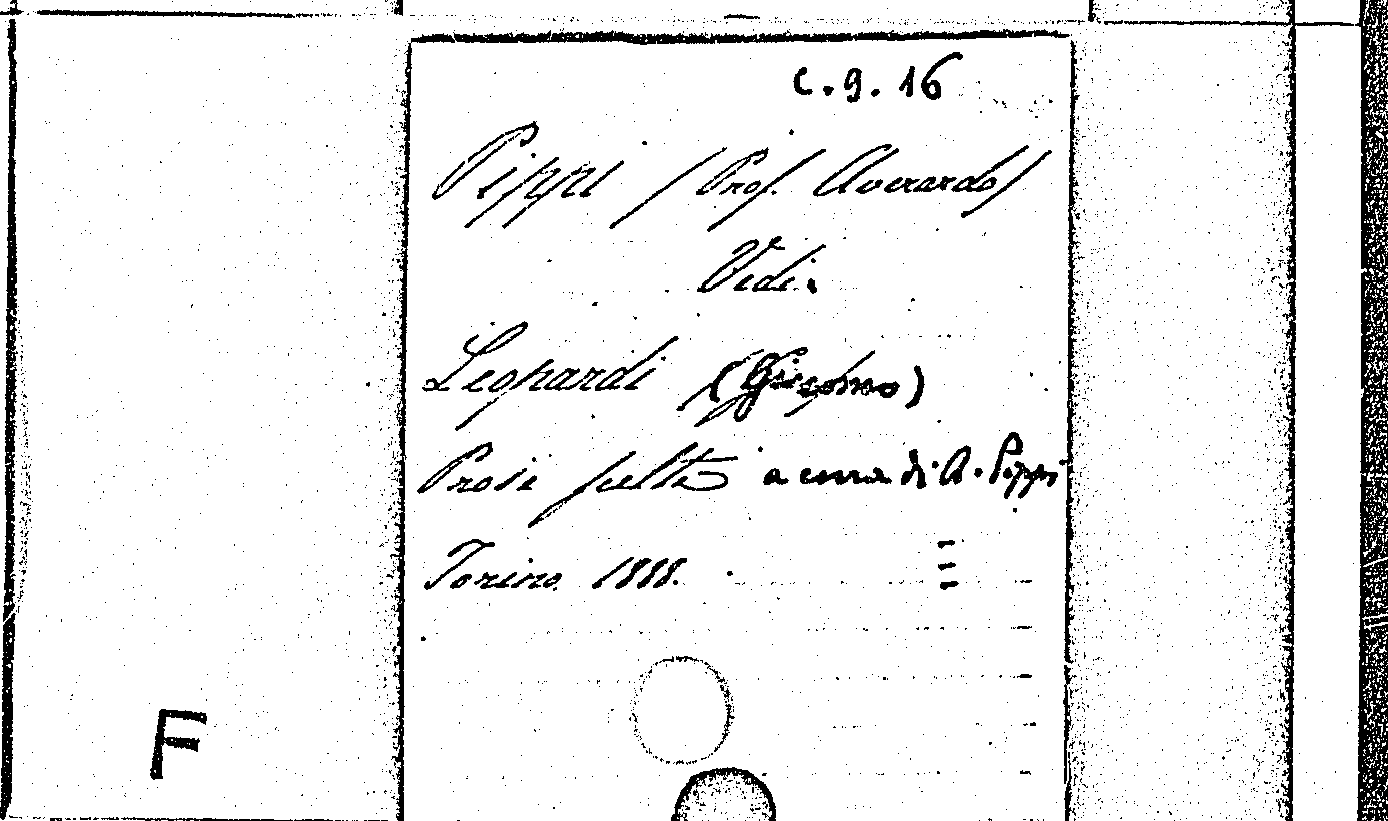 C. 9. 16
Pippi (Prof. Averardo)
Vedi:
Leopardi (Giacomo)
Prose scelte a cura di A. Pippi
Torino 1888.
F